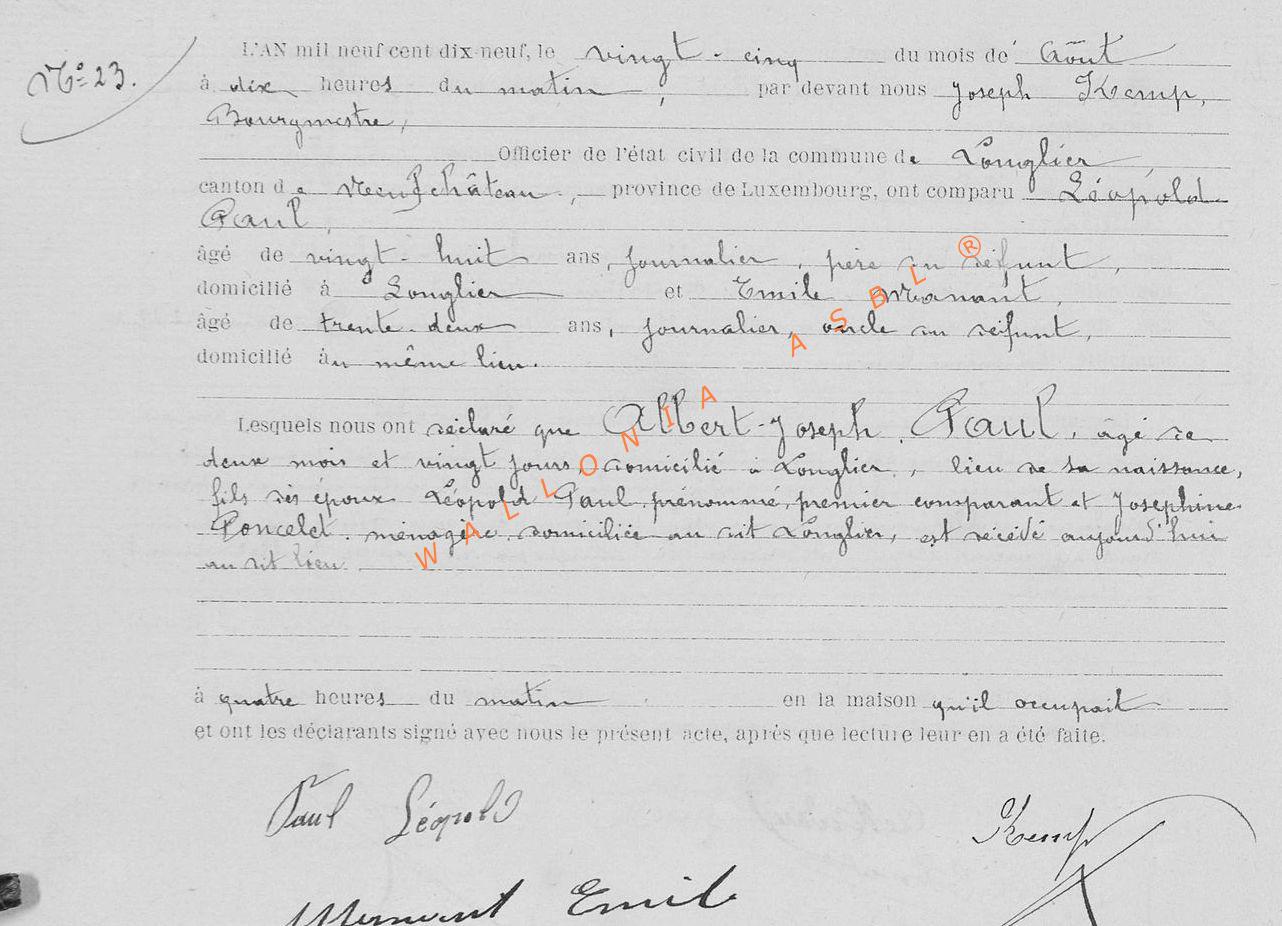 N° 23.
L'AN mil neuf cent dix-neuf, le vingt-cinq du mois de Août
à dix heures du matin, par devant nous Joseph Kemp,
Bourgmestre,
Officier de l'état civil de la commune de Longlier,
canton de Neufchâteau, province de Luxembourg, ont comparu Léopold
Paul,
âgé de vingt-huit ans, journalier, père du défunt,
domicilié à Longlier et Emile
âgé de trente-deux ans, journalier, oncle du défunt,
domicilié au même lieu.
Lesquels nous ont déclaré que Albert-Joseph Paul, âgé de
deux mois et vingt jours, domicilié à Longlier, lieu de sa naissance,
fils des époux Léopold Paul, prénommé, premier comparant et Josephine
Poncelet, ménagère, domiciliée au dit Longlier, est décédé aujourd'hui
au dit lieu.
à quatre heures du matin en la maison qu'il occupait
et ont les déclarants signé avec nous le présent acte, après que lecture leur en a été faite.
Paul Léopold
Kemp
Emile
WALLONIA ASBL ®